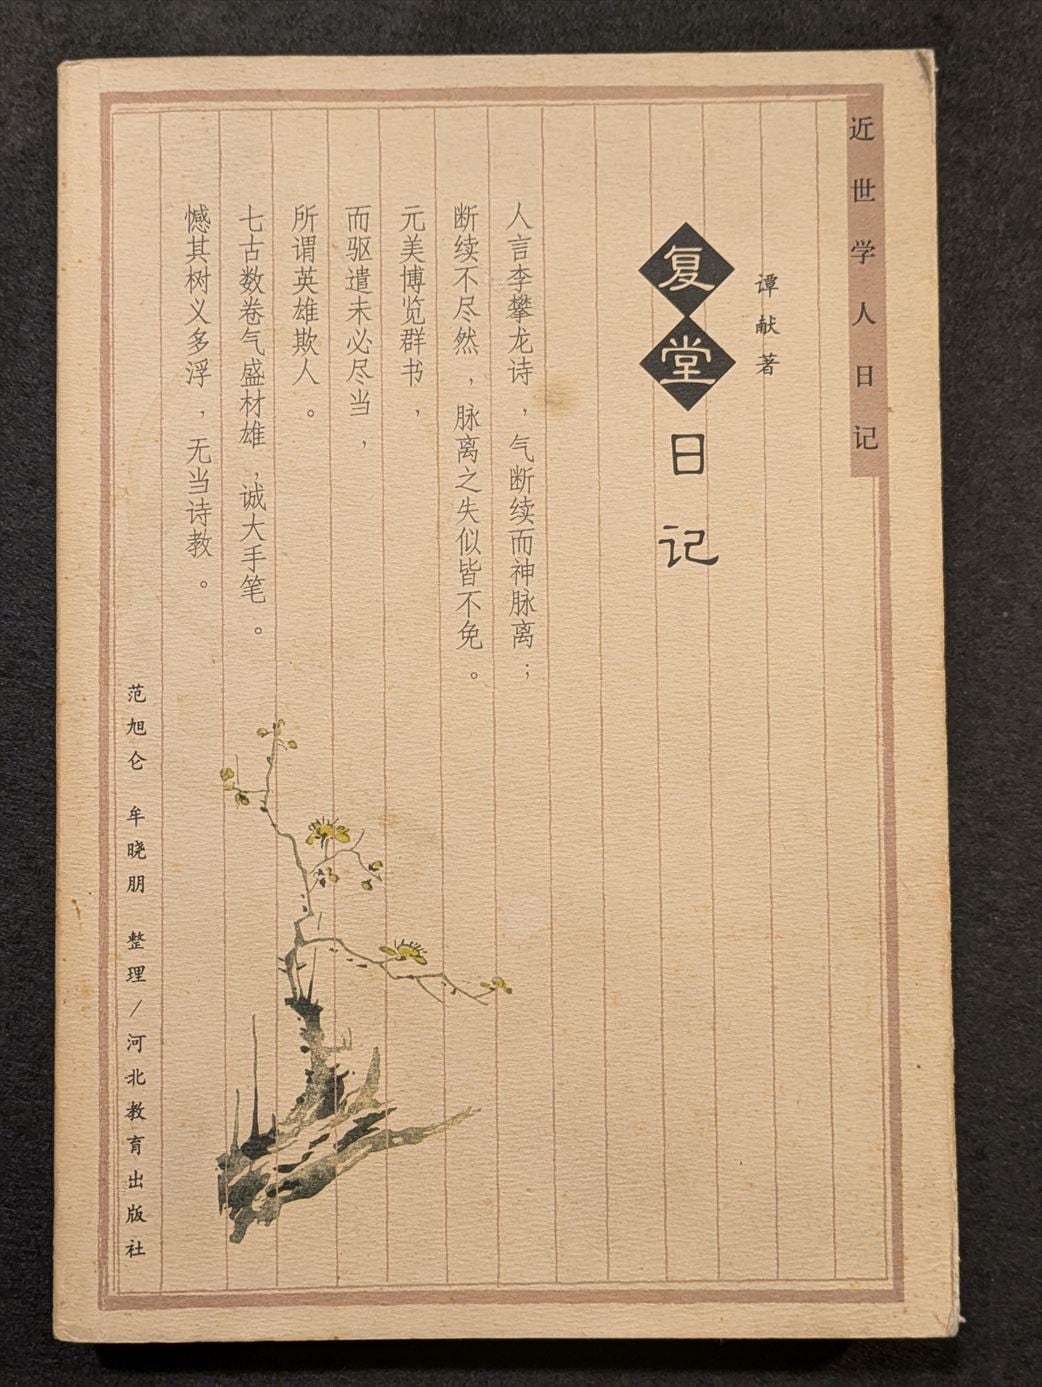 近世学人日记
谭献著
复堂日记
人言李攀龙诗，气断续而神脉离；
断续不尽然，脉离之失似皆不免。
元美博览群书，
而驱遣未必尽当，
所谓英雄欺人。
七古数卷气盛材雄，诚大手笔。
憾其树义多浮，无当诗教。
范旭仑 牟晓朋 整理/河北教育出版社